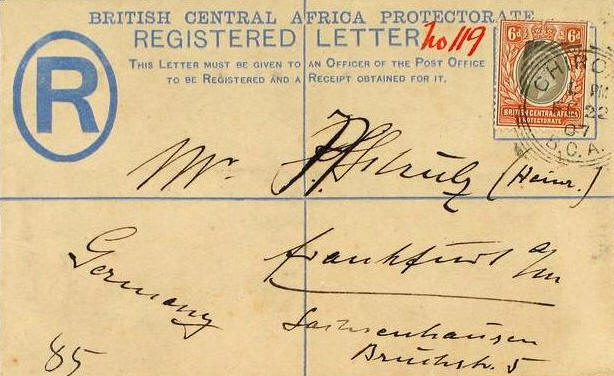 BRITISH CENTRAL AFRICA PROTECTORATE
REGISTERED LETTER.
No 119
THIS LETTER MUST BE GIVEN TO AN OFFICER OF THE POST OFFICE
TO BE REGISTERED AND A RECEIPT OBTAINED FOR IT.
R
6d 6d
BRITISH CENTRAL AFRICA
PROTECTORATE
CHIRO
PM
22
07
B.C.A.
Mr. Schulz (Heinr.)
Frankfurt a/m
Germany
Sachsenhausen
Bruchstr. 5
85